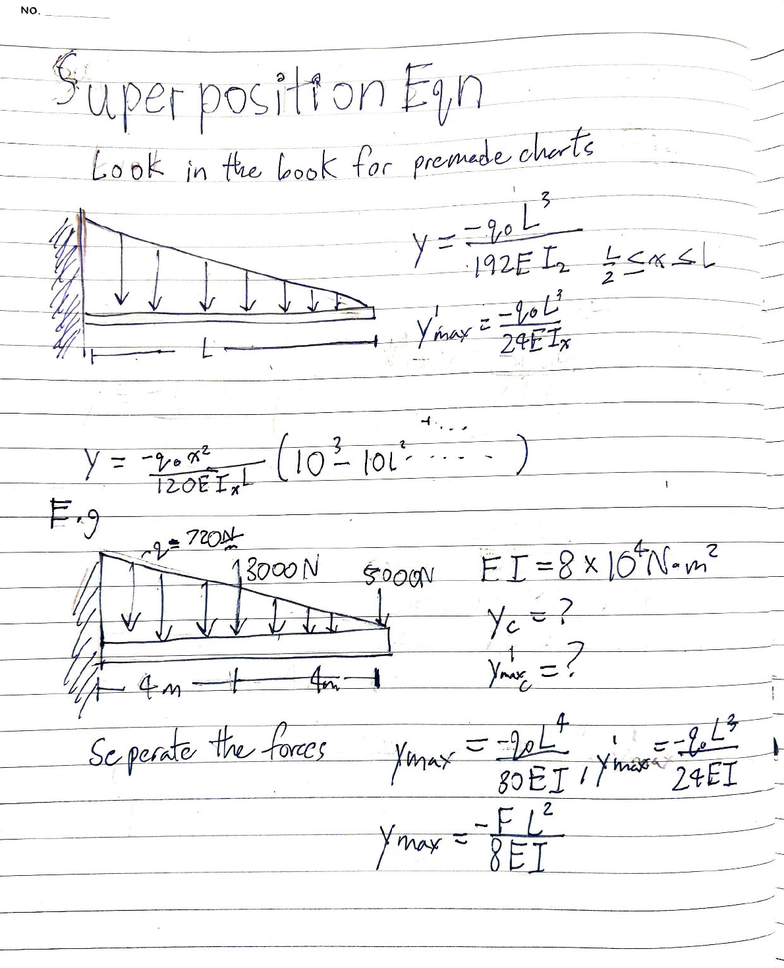 NO.
Superposition Eqn
Look in the book for premade charts
y = -q₀L³ / 192EI₂   L/2 ≤ x ≤ L
y'max = -q₀L³ / 24EIₓ
L
y = -q₀x² / 120EIₓL (10³ - 10L² ..... + ....)
E.g
q = 720 N/m
3000N
5000N
EI = 8 × 10⁴ N·m²
yc = ?
y'max c = ?
4m 4m
Seperate the forces
ymax = -q₀L⁴ / 30EI , y'max = -q₀L³ / 24EI
ymax = -FL² / 8EI